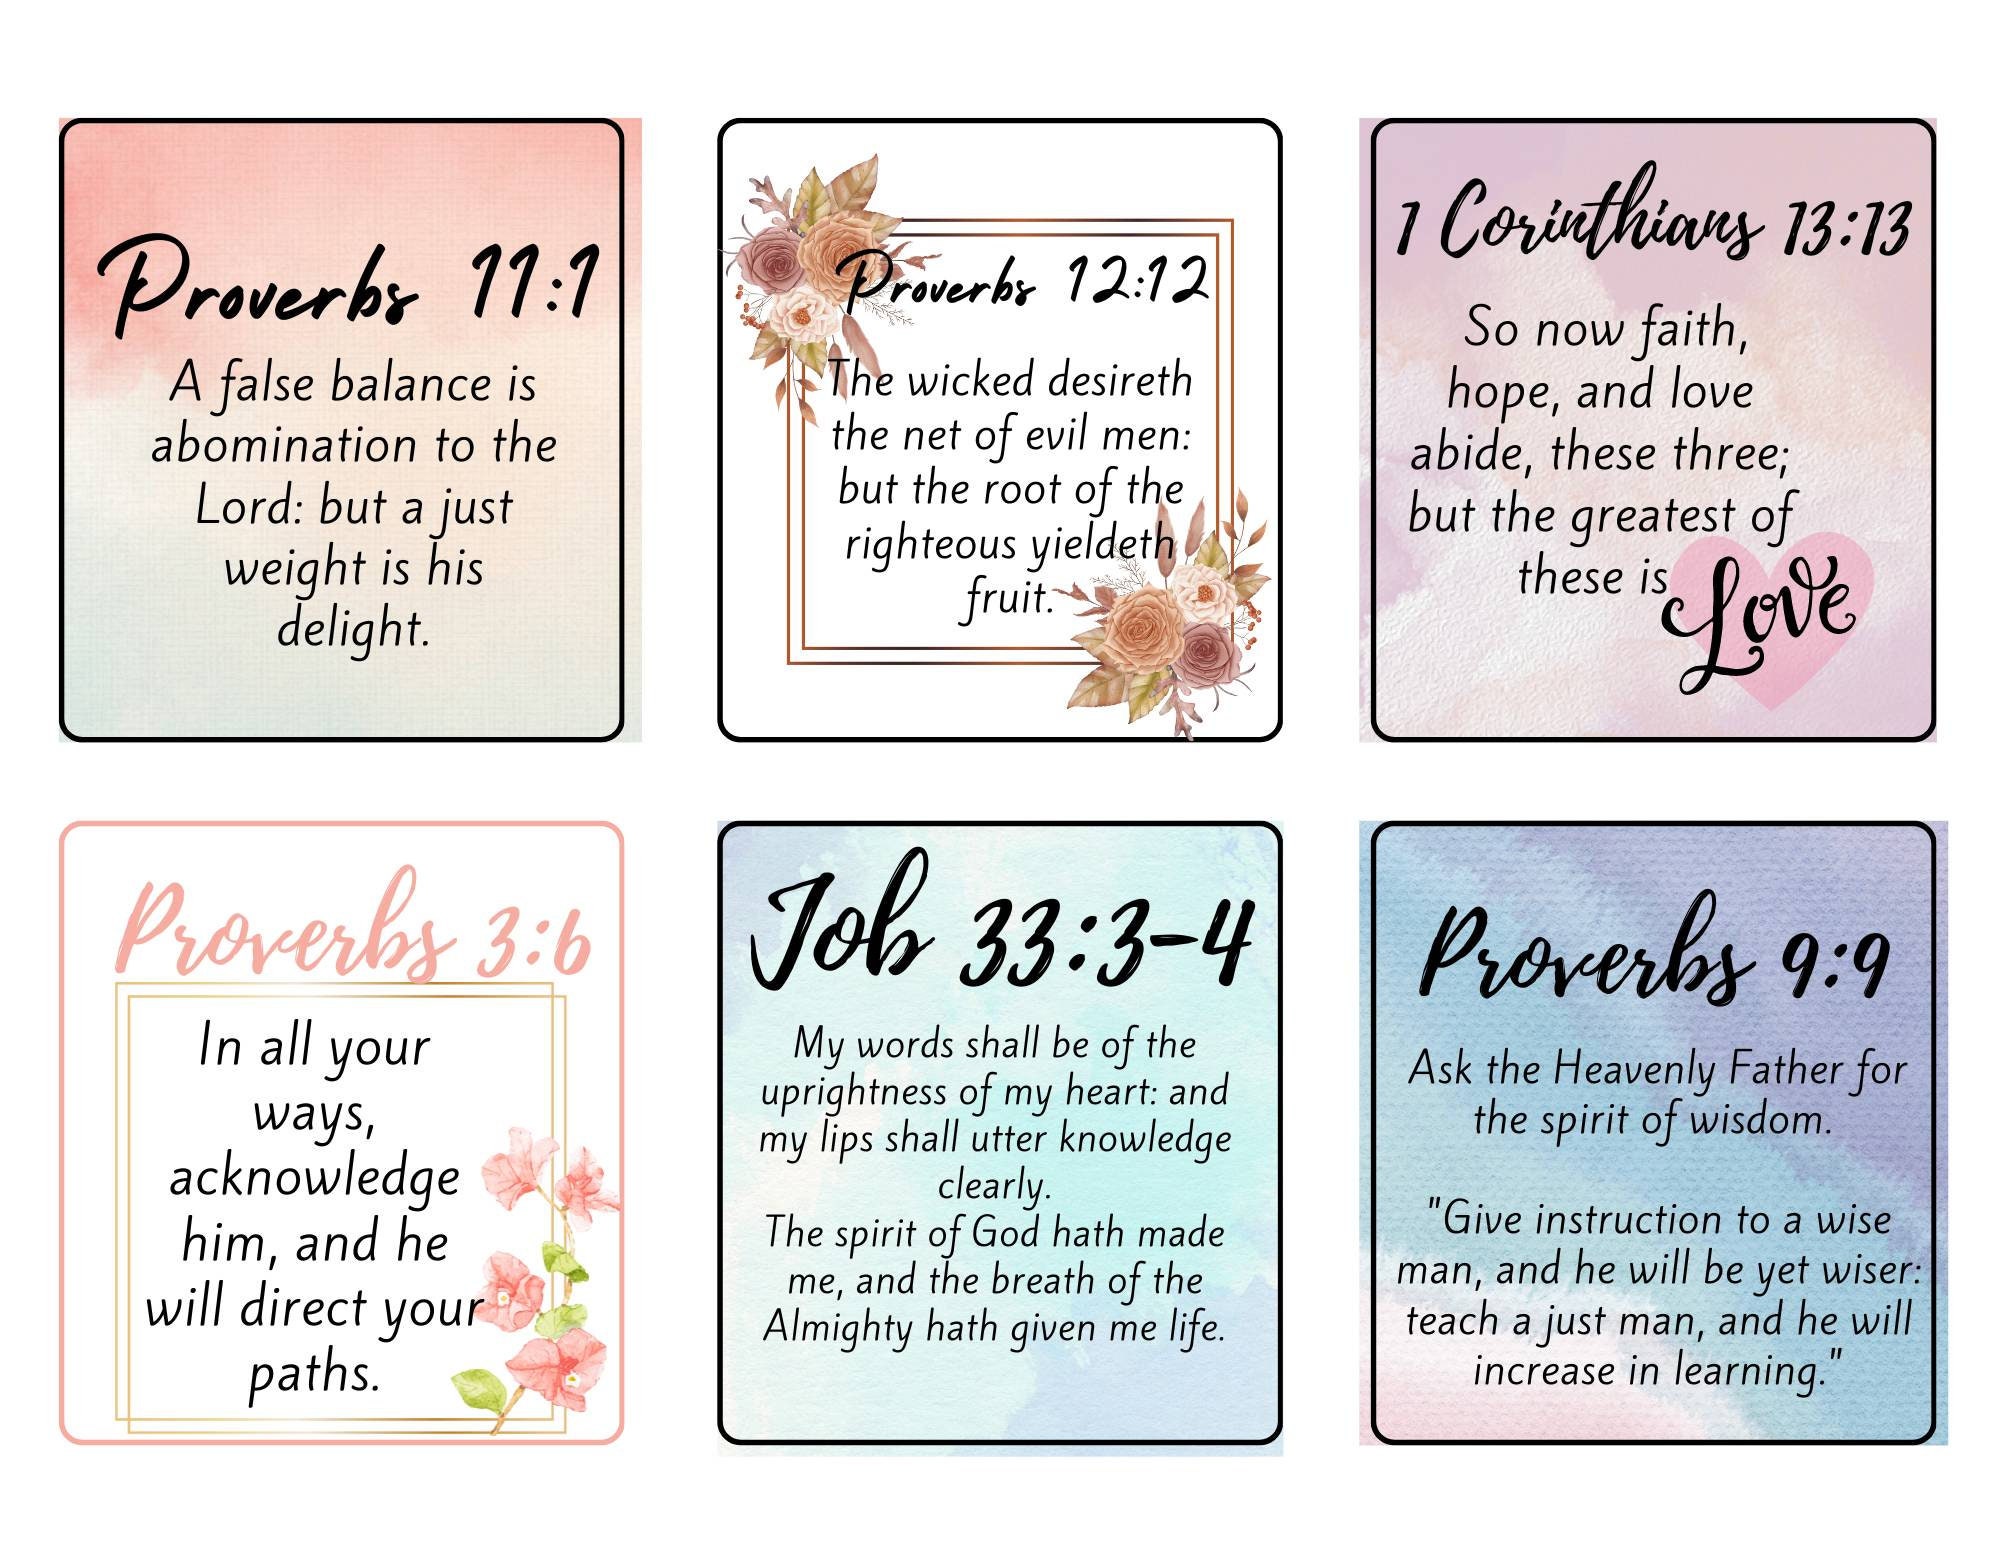 Proverbs 11:1
A false balance is
abomination to the
Lord: but a just
weight is his
delight.
Proverbs 12:12
The wicked desireth
the net of evil men:
but the root of the
righteous yieldeth
fruit.
1 Corinthians 13:13
So now faith,
hope, and love
abide, these three;
but the greatest of
these is Love
Proverbs 3:6
In all your
ways,
acknowledge
him, and he
will direct your
paths.
Job 33:3-4
My words shall be of the
uprightness of my heart: and
my lips shall utter knowledge
clearly.
The spirit of God hath made
me, and the breath of the
Almighty hath given me life.
Proverbs 9:9
Ask the Heavenly Father for
the spirit of wisdom.
"Give instruction to a wise
man, and he will be yet wiser:
teach a just man, and he will
increase in learning."